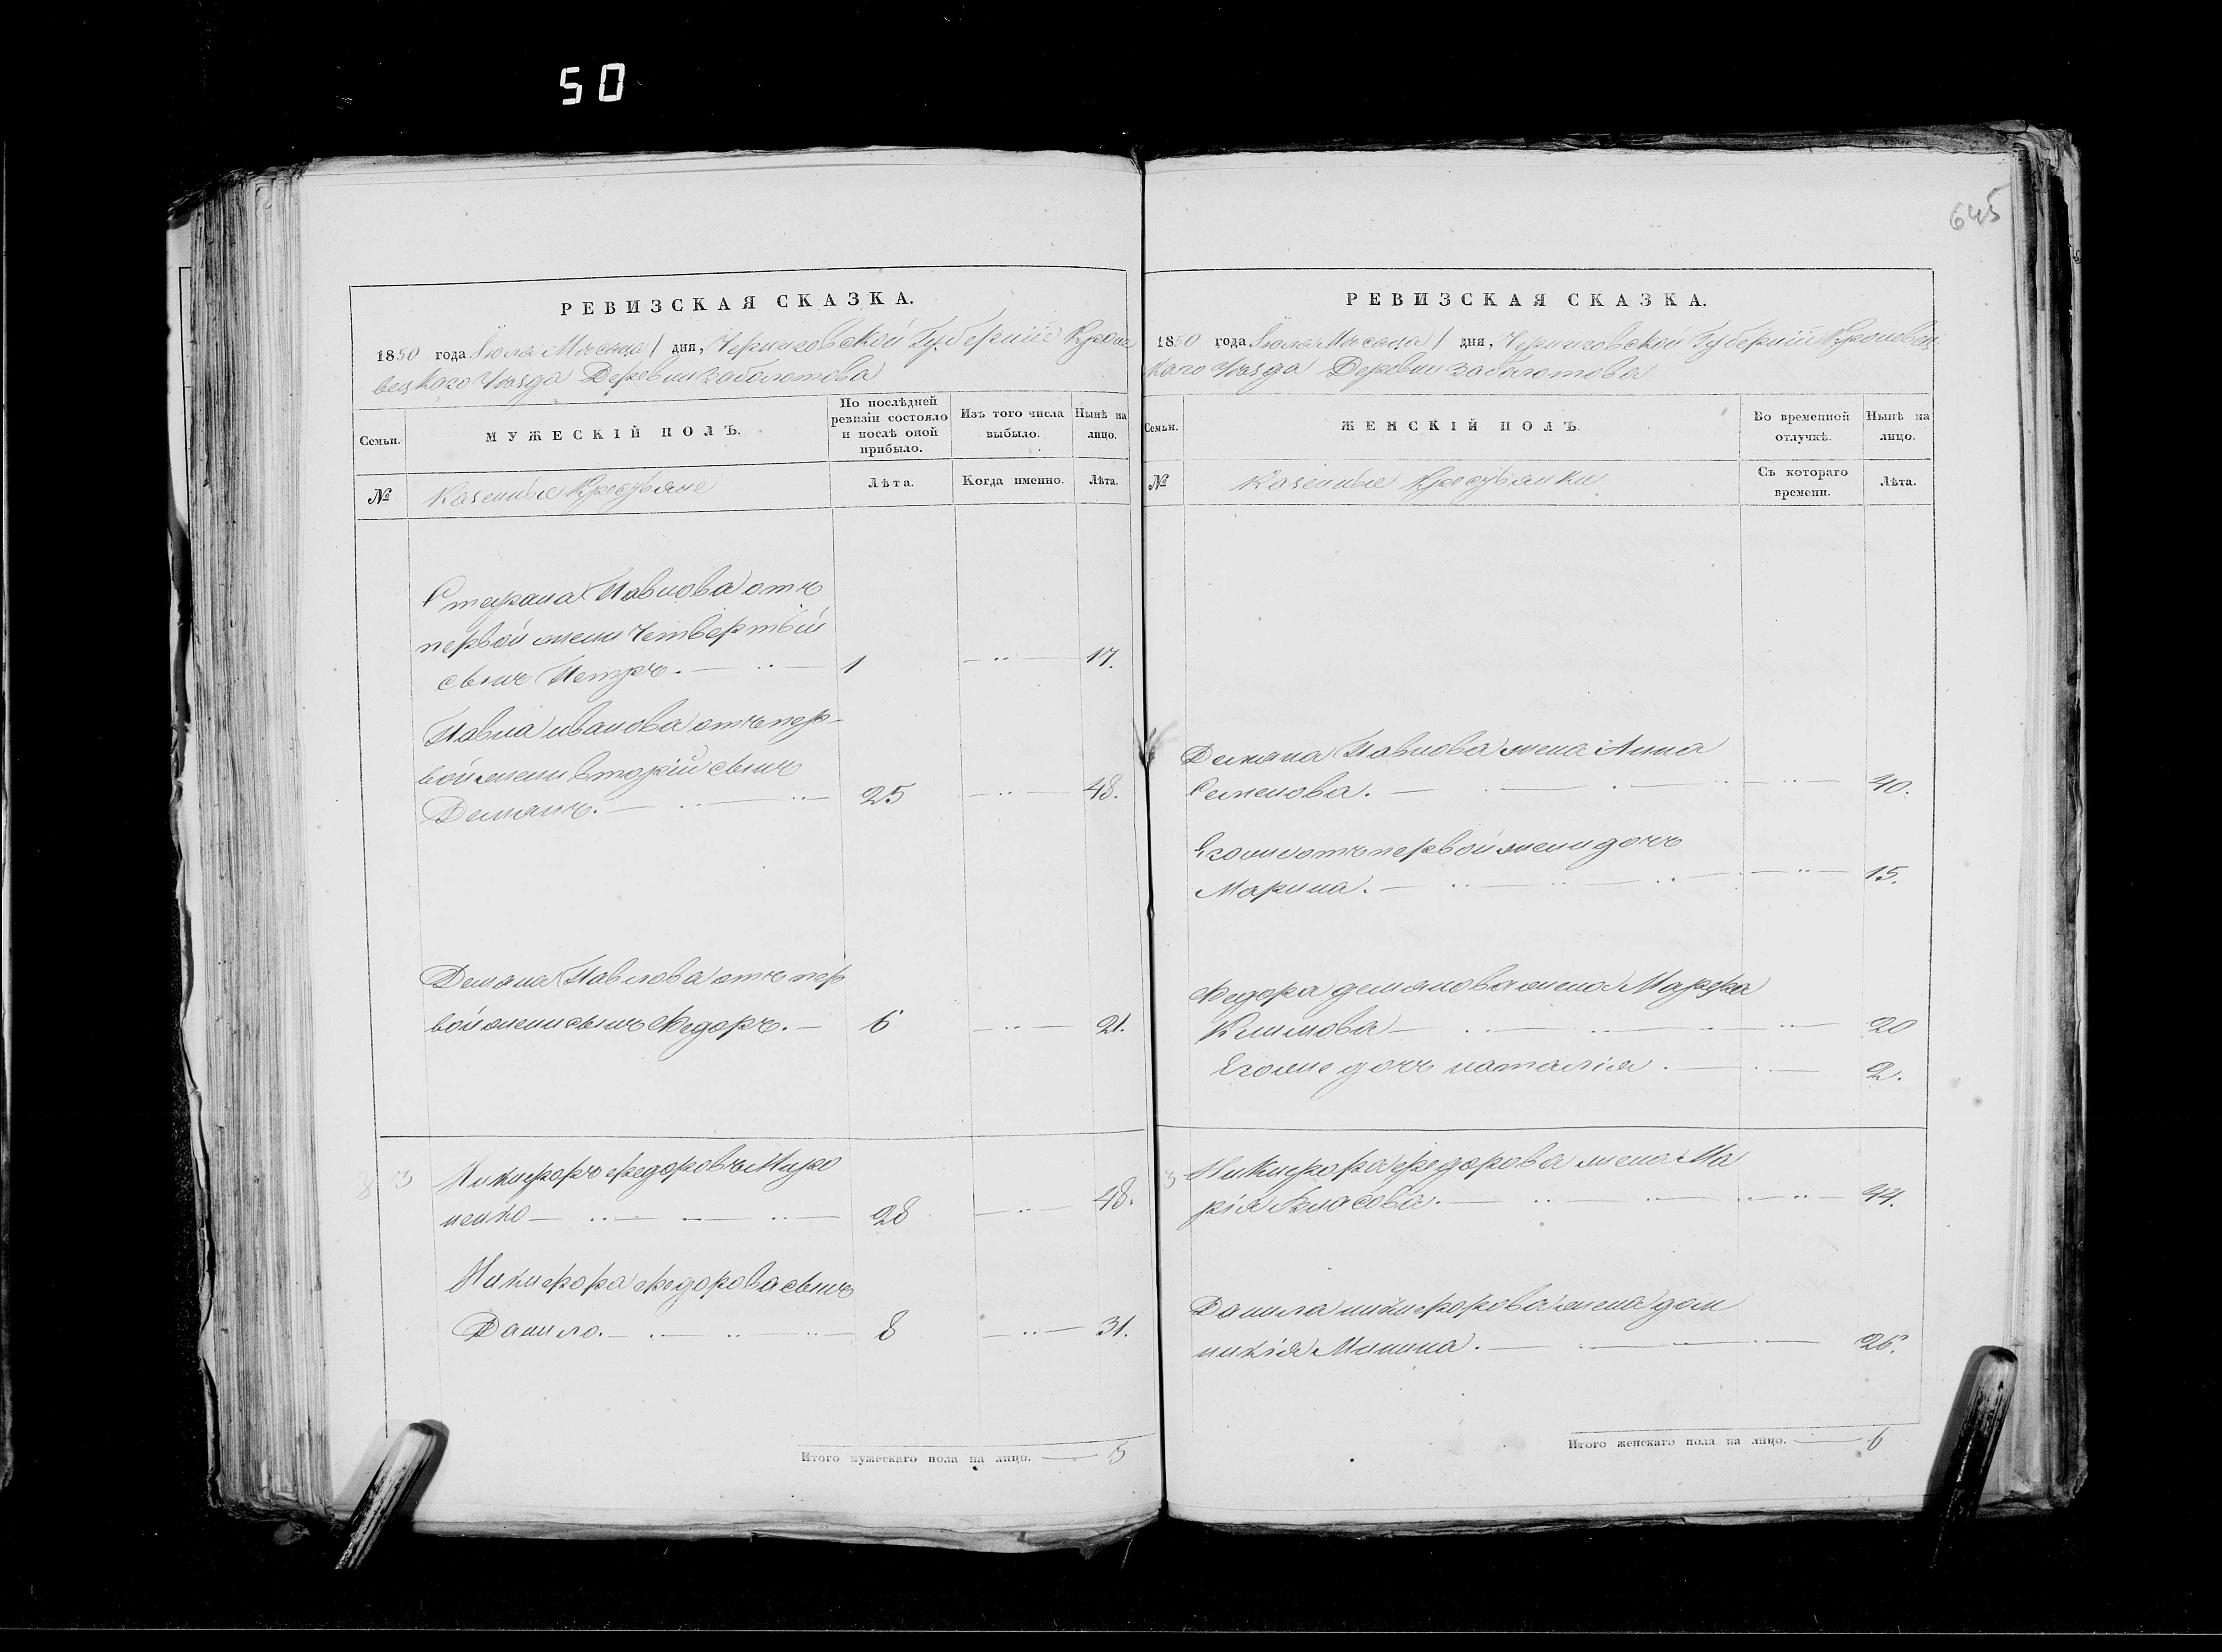 50
645
РЕВИЗСКАЯ СКАЗКА.
1850 года Іюля Мѣсяца 1 дня, Черниговской Губерніи Кроле
вецкаго Уѣзда Деревни Заболотова
Семьи.
МУЖЕСКІЙ ПОЛЪ.
По послѣдней
ревизіи состояло
и послѣ оной
прибыло.
Изъ того числа
выбыло.
Нынѣ на
лицо.
№
Казенные Крестьяне
Лѣта.
Когда именно.
Лѣта.
Павлова отъ
первой жени Четвертый
сынъ Петръ. 1 17.
Павла иванова отъ пер-
вой жени вторій сынъ
Демянъ. 25 48.
Демяна Павлова отъ пер
вой жени сынъ Федоръ. 6 21.
3 Никифоръ федоровъ Миро
ненко 28 48.
Никифора федорова сынъ
Данило. 8 31.
Итого мужескаго пола на лицо. 5
РЕВИЗСКАЯ СКАЗКА.
1850 года Іюля Мѣсяца 1 дня, Черниговской Губерніи Кролевец
каго Уѣзда Деревни Заболотова
Семьи.
ЖЕНСКІЙ ПОЛЪ.
Во временной
отлучкѣ.
Нынѣ на
лицо.
№
Казенные Крестьянки
Съ котораго
времени.
Лѣта.
Демяна Павлова жена Анна
Семенова. 40.
Егоже отъ первой жени дочь
Марина. 15.
Федора демянова жена Марфа
Климова 20
Егоже дочь наталія. 2.
3 Никифора федорова жена Ма
рія Власова. 44.
Данила никифорова жена дом
никія Минина. 26.
Итого женскаго пола на лицо. 6